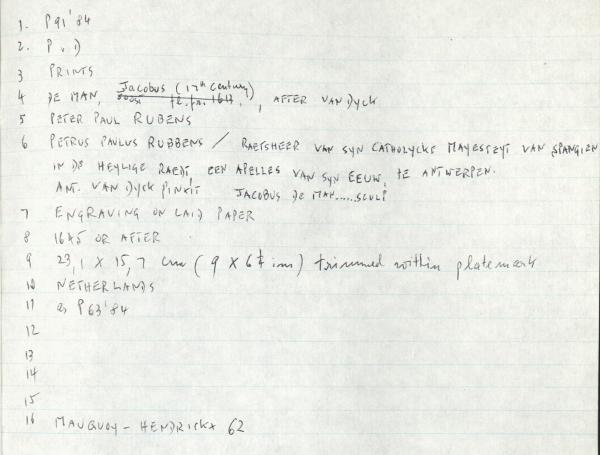 1. P91'84
2. P. D
3 PRINTS
4 DE MAN, Jacobus (17th Century), AFTER VAN DYCK
5 PETER PAUL RUBENS
6 PETRUS PAULUS RUBBENS / RAETSHEER VAN SYN CATHOLYCKE MAYESTEYT VAN SPANGIEN
IN DE HEYLIGE RAEDT, EEN APELLES VAN SYN EEUW, TE ANTWERPEN.
ANT. VAN DYCK PINXIT JACOBUS DE MAN.....SCULP
7 ENGRAVING ON LAID PAPER
8 1645 OR AFTER
9 23,1 X 15,7 cm (9 X 6 in) trimmed within platemark
10 NETHERLANDS
11 as P63'84
12
13
14
15
16 MAUQUOY - HENDRICKX 62